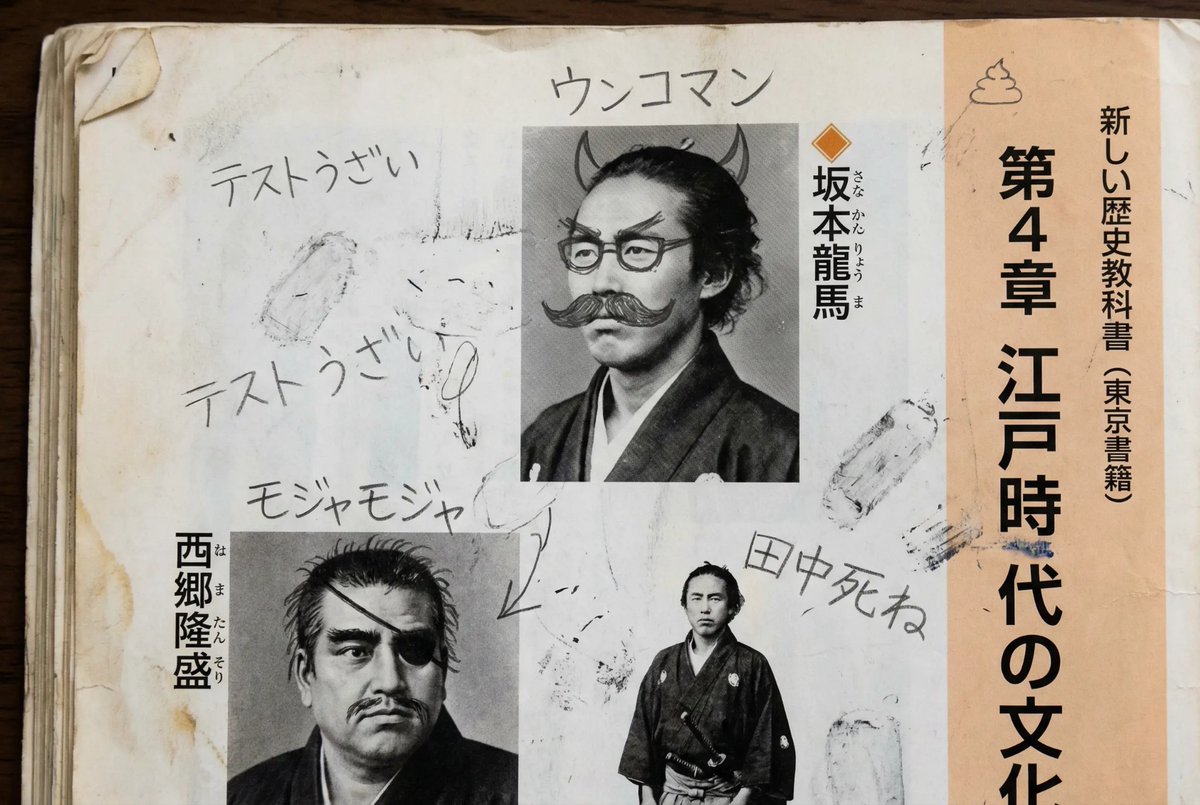 新しい歴史教科書（東京書籍）
第4章 江戸時代の文化
坂本龍馬
さな かた りょう ま
ウンコマン
テストうざい
テストうざい
モジャモジャ
田中死ね
西郷隆盛
はま たん そり